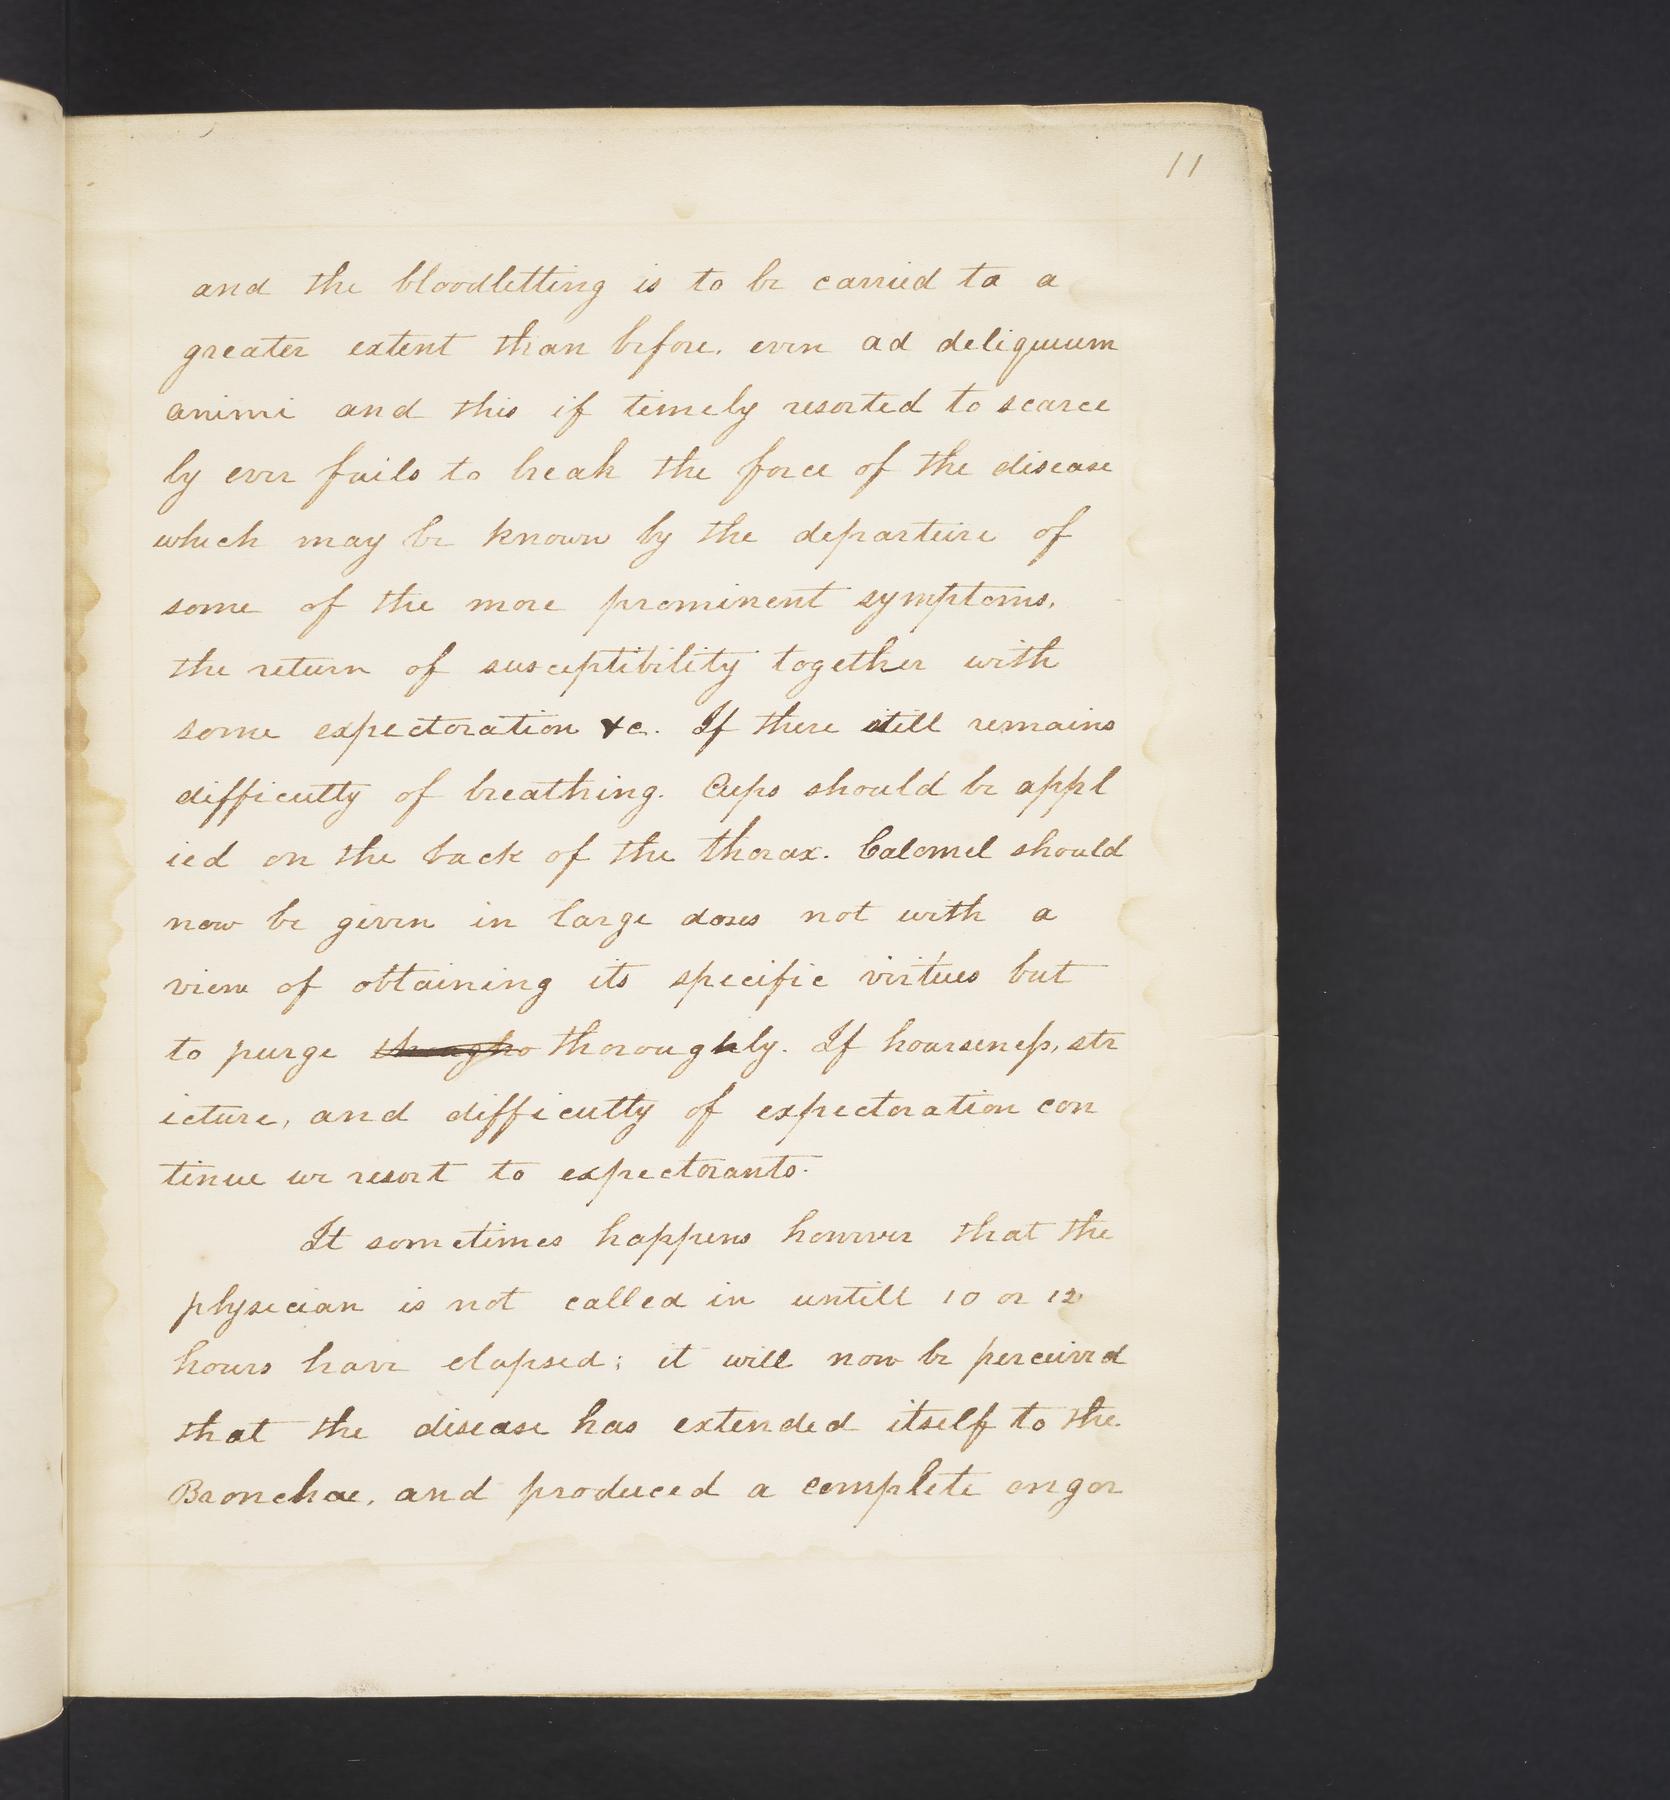 11
and the bloodletting is to be carried to a
greater extent than before. even ad deliquium
animi and this if timely resorted to scarce
ly ever fails to break the force of the disease
which may be known by the departure of
some of the more prominent symptoms,
the return of susceptibility together with
some expectoration &c. If there still remains
difficulty of breathing. Cups should be appl
ied on the back of the thorax. Calomel should
now be given in large doses not with a
view of obtaining its specific virtues but
to purge thoroughly. If hoarseness, str
icture, and difficulty of expectoration con
tinue we resort to expectorants.
It sometimes happens however that the
physician is not called in untill 10 or 12
hours have elapsed; it will now be perceived
that the disease has extended itself to the
Bronchae, and produced a complete engor